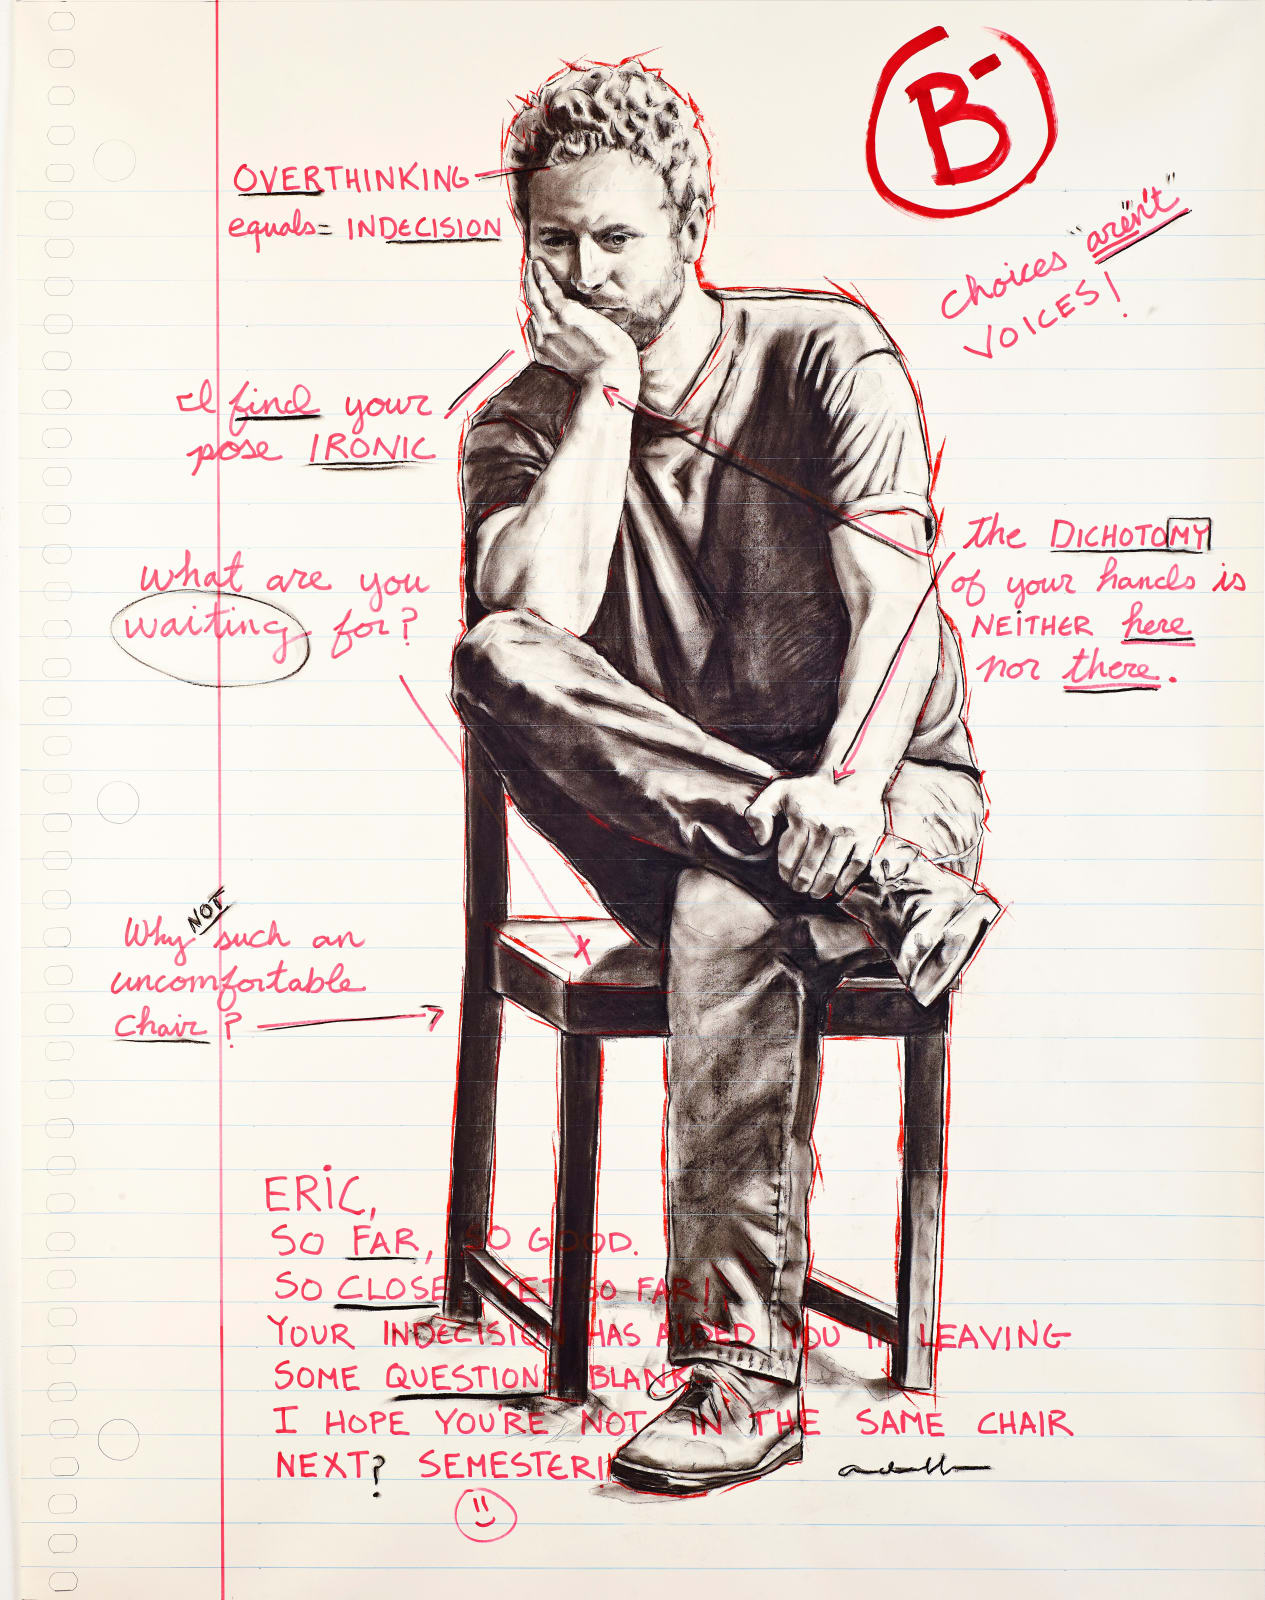 B-
OVERTHINKING
equals= INDECISION
choices "aren't"
VOICES!
I find your
pose IRONIC
the DICHOTOMY
of your hands is
NEITHER here
nor there.
what are you
waiting for?
Why NOT such an
uncomfortable
chair?
ERIC,
SO FAR, SO GOOD.
SO CLOSE, YET SO FAR!
YOUR INDECISION HAS AIDED YOU IN LEAVING
SOME QUESTIONS BLANK
I HOPE YOU'RE NOT IN THE SAME CHAIR
NEXT? SEMESTER!!